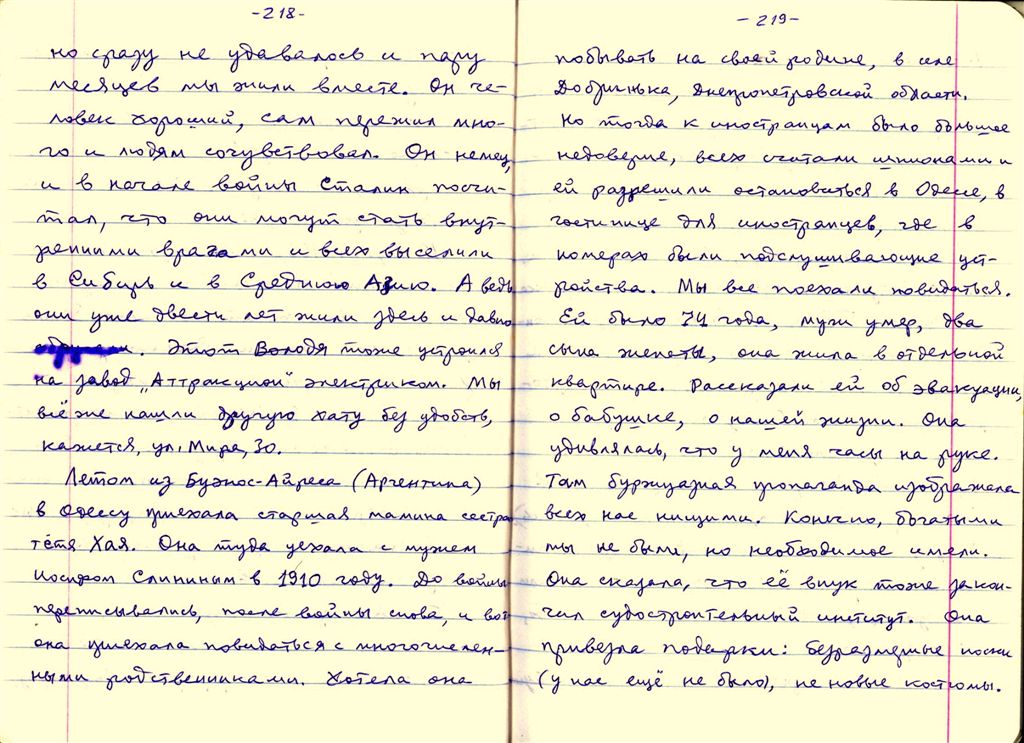 -218-
но сразу не удавалось и пару
месяцев мы жили вместе. Он че-
ловек хороший, сам пережил мно-
го и людям сочувствовал. Он немец,
и в начале войны Сталин посчи-
тал, что они могут стать внут-
ренними врагами и всех выселили
в Сибирь и в Среднюю Азию. А ведь
они уже двести лет жили здесь и давно
. Этот Володя тоже устроился
на завод „Аттракцион" электриком. Мы
всё же нашли другую хату без удобств,
кажется, ул. Мира, 30.
Летом из Буэнос-Айреса (Аргентина)
в Одессу приехала старшая мамина сестра
тётя Хая. Она туда уехала с мужем
Иосифом Слининым в 1910 году. До войны
переписывались, после войны снова, и вот
она приехала повидаться с многочислен-
ными родственниками. Хотела она
-219-
побывать на своей родине, в селе
Добринька, Днепропетровской области.
Но тогда к иностранцам было большое
недоверие, всех считали шпионами и
ей разрешили остановиться в Одессе, в
гостинице для иностранцев, где в
номерах были подслушивающие уст-
ройства. Мы все поехали повидаться.
Ей было 74 года, муж умер, два
сына женаты, она жила в отдельной
квартире. Рассказали ей об эвакуации,
о бабушке, о нашей жизни. Она
удивлялась, что у меня часы на руке.
Там буржуазная пропаганда изображала
всех нас нищими. Конечно, богатыми
мы не были, но необходимое имели.
Она сказала, что её внук тоже закон-
чил судостроительный институт. Она
привезла подарки: безразмерные носки
(у нас ещё не было), не новые костюмы.